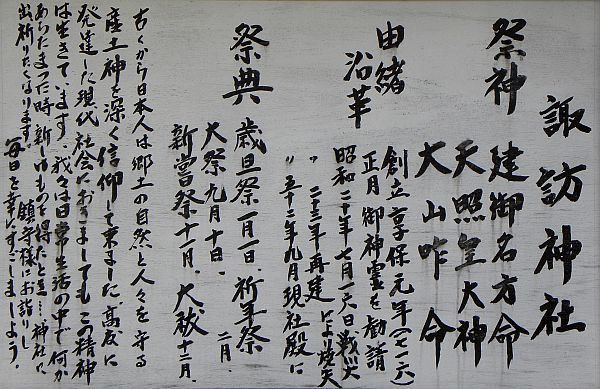 諏訪神社
祭神
建御名方命
天照皇大神
大山咋命
由緒
沿革
創立享保元年(七一六)
正月御神霊を勧請
昭和二十年七月一六日戦災
により焼失
〃二十三年再建
〃五十二年九月現社殿に
祭典
歳旦祭一月一日、祈年祭
二月、
大祭九月十日、
新嘗祭十一月、大祓十二月、
古くから日本人は郷土の自然と人々を守る
産土神を深く信仰して来ました、高度に
発達した現代社会におきましてもこの精神
は生きています。我々は日常生活の中で何か
あらたまった時新しいものを得たとき…神社に
出祈りたくなります。鎮守様にお詣りし
毎日を幸にすごしましよう。